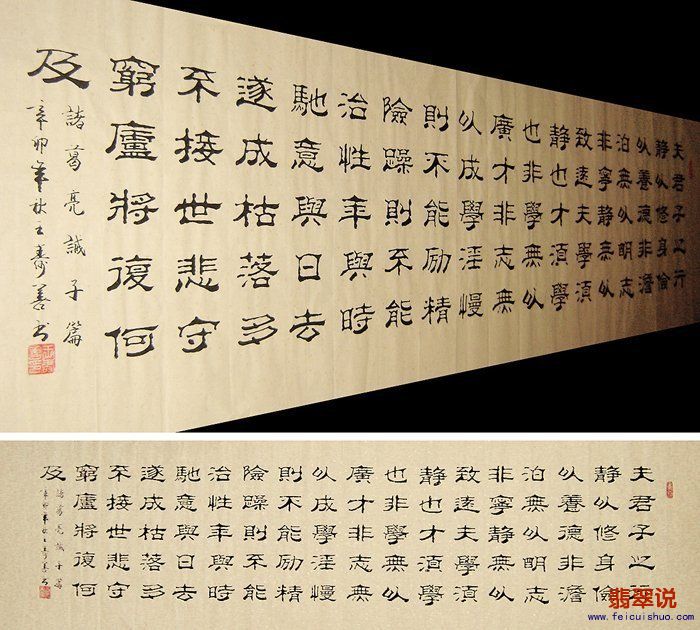 夫君子之行
静以修身儉
以養德非澹
泊無以明志
非寧静無以
致遠夫學須
静也才須學
也非學無以
廣才非志無
以成學淫慢
則不能励精
險躁則不能
治性年與時
馳意與日去
遂成枯落多
不接世悲守
窮廬將復何
及
諸葛亮誡子篇
辛卯年秋王壽善书
夫君子之行
静以修身儉
以養德非澹
泊無以明志
非寧静無以
致遠夫學須
静也才須學
也非學無以
廣才非志無
以成學淫慢
則不能励精
險躁則不能
治性年與時
馳意與日去
遂成枯落多
不接世悲守
窮廬將復何
及
諸葛亮誡子篇
辛卯年秋王壽善书
翡翠说
www.feicuishuo.com